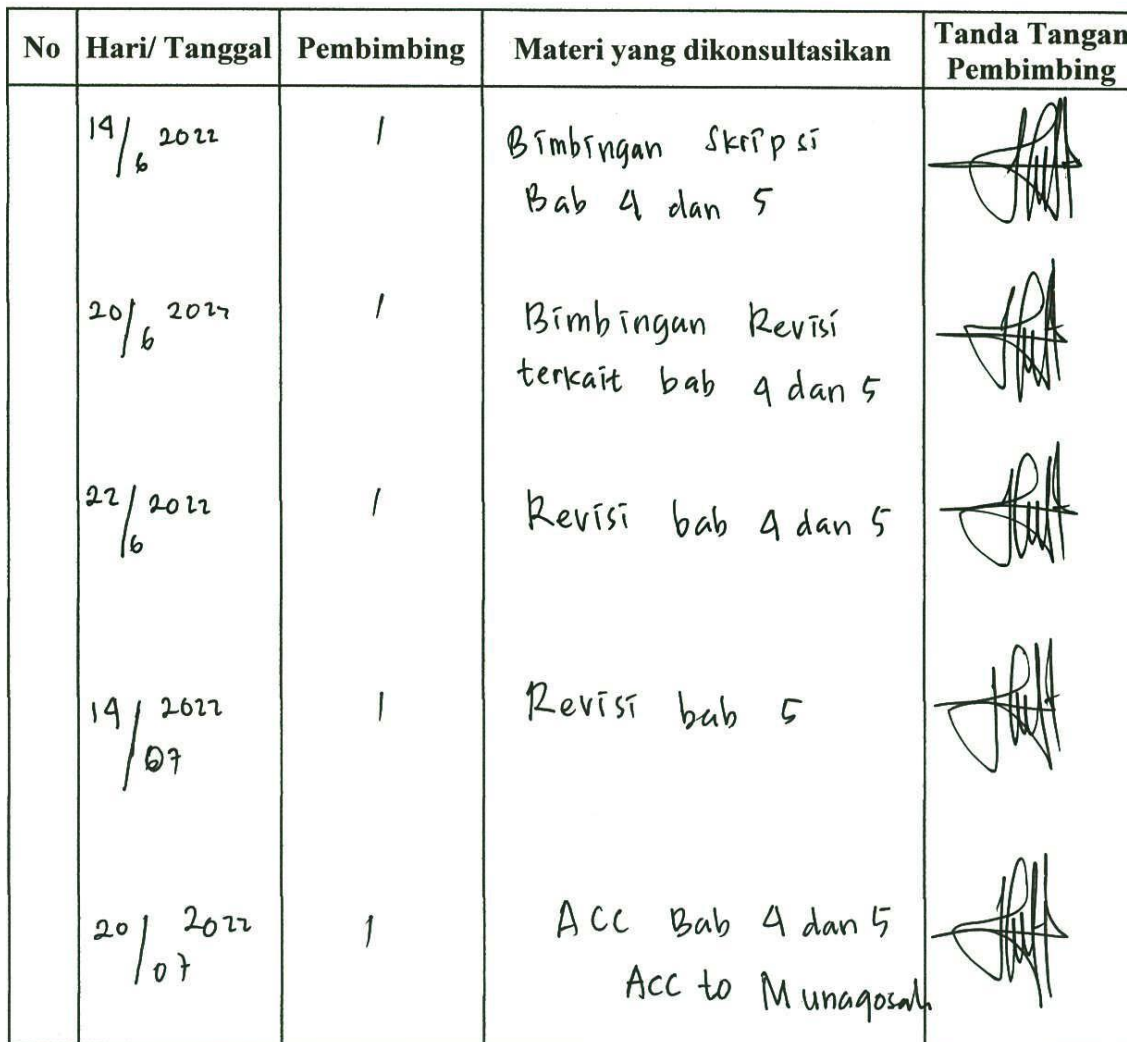 No Hari/ Tanggal Pembimbing Materi yang dikonsultasikan Tanda Tangan
Pembimbing
14/6 2022 1 Bimbingan Skripsi
Bab 4 dan 5
20/6 2022 1 Bimbingan Revisi
terkait bab 4 dan 5
22/6 2022 1 Revisi bab 4 dan 5
14/07 2022 1 Revisi bab 5
20/07 2022 1 ACC Bab 4 dan 5
Acc to Munaqosah